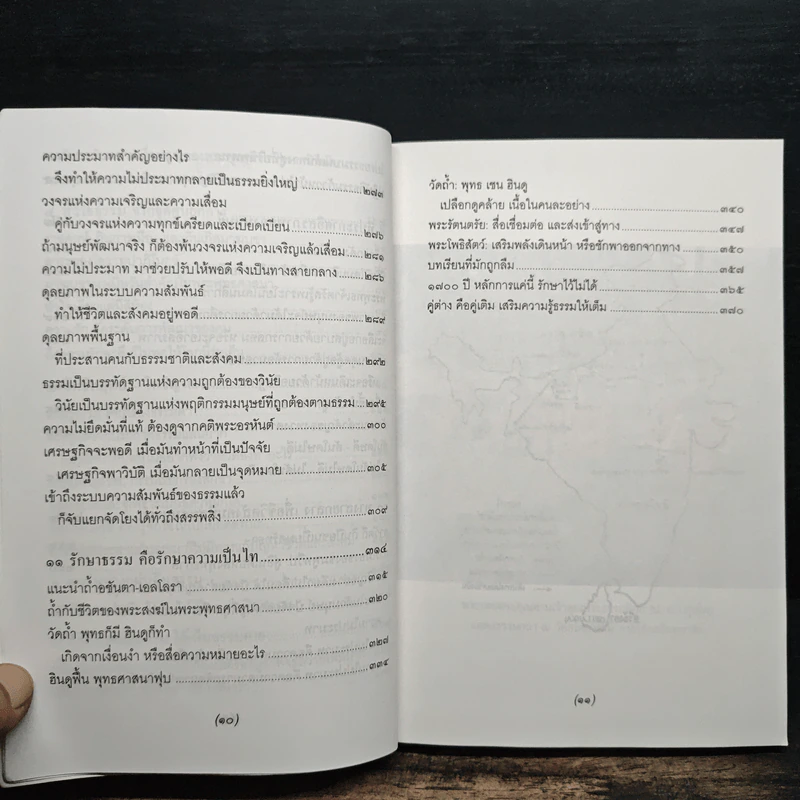 ความประมาทสำคัญอย่างไร
จึงทำให้ความไม่ประมาทกลายเป็นธรรมยิ่งใหญ่ ................ ๒๗๓
วงจรแห่งความเจริญและความเสื่อม
คู่กับวงจรแห่งความทุกข์เครียดและเบียดเบียน ................ ๒๗๖
ถ้ามนุษย์พัฒนาจริง ก็ต้องพ้นวงจรแห่งความเจริญแล้วเสื่อม ..... ๒๘๑
ความไม่ประมาท มาช่วยปรับให้พอดี จึงเป็นทางสายกลาง ....... ๒๘๖
ดุลยภาพในระบบความสัมพันธ์
ทำให้ชีวิตและสังคมอยู่พอดี ................ ๒๘๙
ดุลยภาพพื้นฐาน
ที่ประสานคนกับธรรมชาติและสังคม ................ ๒๙๒
ธรรมเป็นบรรทัดฐานแห่งความถูกต้องของวินัย
วินัยเป็นบรรทัดฐานแห่งพฤติกรรมมนุษย์ที่ถูกต้องตามธรรม ...... ๒๙๕
ความไม่ยึดมั่นที่แท้ ต้องดูจากคติพระอรหันต์ ................ ๓๐๐
เศรษฐกิจจะพอดี เมื่อมันทำหน้าที่เป็นปัจจัย
เศรษฐกิจพาวิบัติ เมื่อมันกลายเป็นจุดหมาย ................ ๓๐๕
เข้าถึงระบบความสัมพันธ์ของธรรมแล้ว
ก็จับแยกจัดโยงได้ทั่วถึงสรรพสิ่ง ................ ๓๐๙
๑๑ รักษาธรรม คือรักษาความเป็นไท ................ ๓๑๔
แนะนำถ้ำอชันตา-เอลโลรา ................ ๓๑๕
ถ้ำกับชีวิตของพระสงฆ์ในพระพุทธศาสนา ................ ๓๒๐
วัดถ้ำ พุทธก็มี ฮินดูก็ทำ
เกิดจากเงื่อนงำ หรือสื่อความหมายอะไร ................ ๓๒๗
ฮินดูฟื้น พุทธศาสนาฟุบ ................ ๓๓๔
(๑๐)
วัดถ้ำ: พุทธ เชน ฮินดู
เปลือกดูคล้าย เนื้อในคนละอย่าง ................ ๓๔๐
พระรัตนตรัย: สื่อเชื่อมต่อ และส่งเข้าสู่ทาง ................ ๓๔๗
พระโพธิสัตว์: เสริมพลังเดินหน้า หรือชักพาออกจากทาง ......... ๓๕๐
บทเรียนที่มักถูกลืม ................ ๓๕๗
๑๗๐๐ ปี หลักการแค่นี้ รักษาไว้ไม่ได้ ................ ๓๖๕
คู่ต่าง คือคู่เติม เสริมความรู้ธรรมให้เต็ม ................ ๓๗๐
(๑๑)